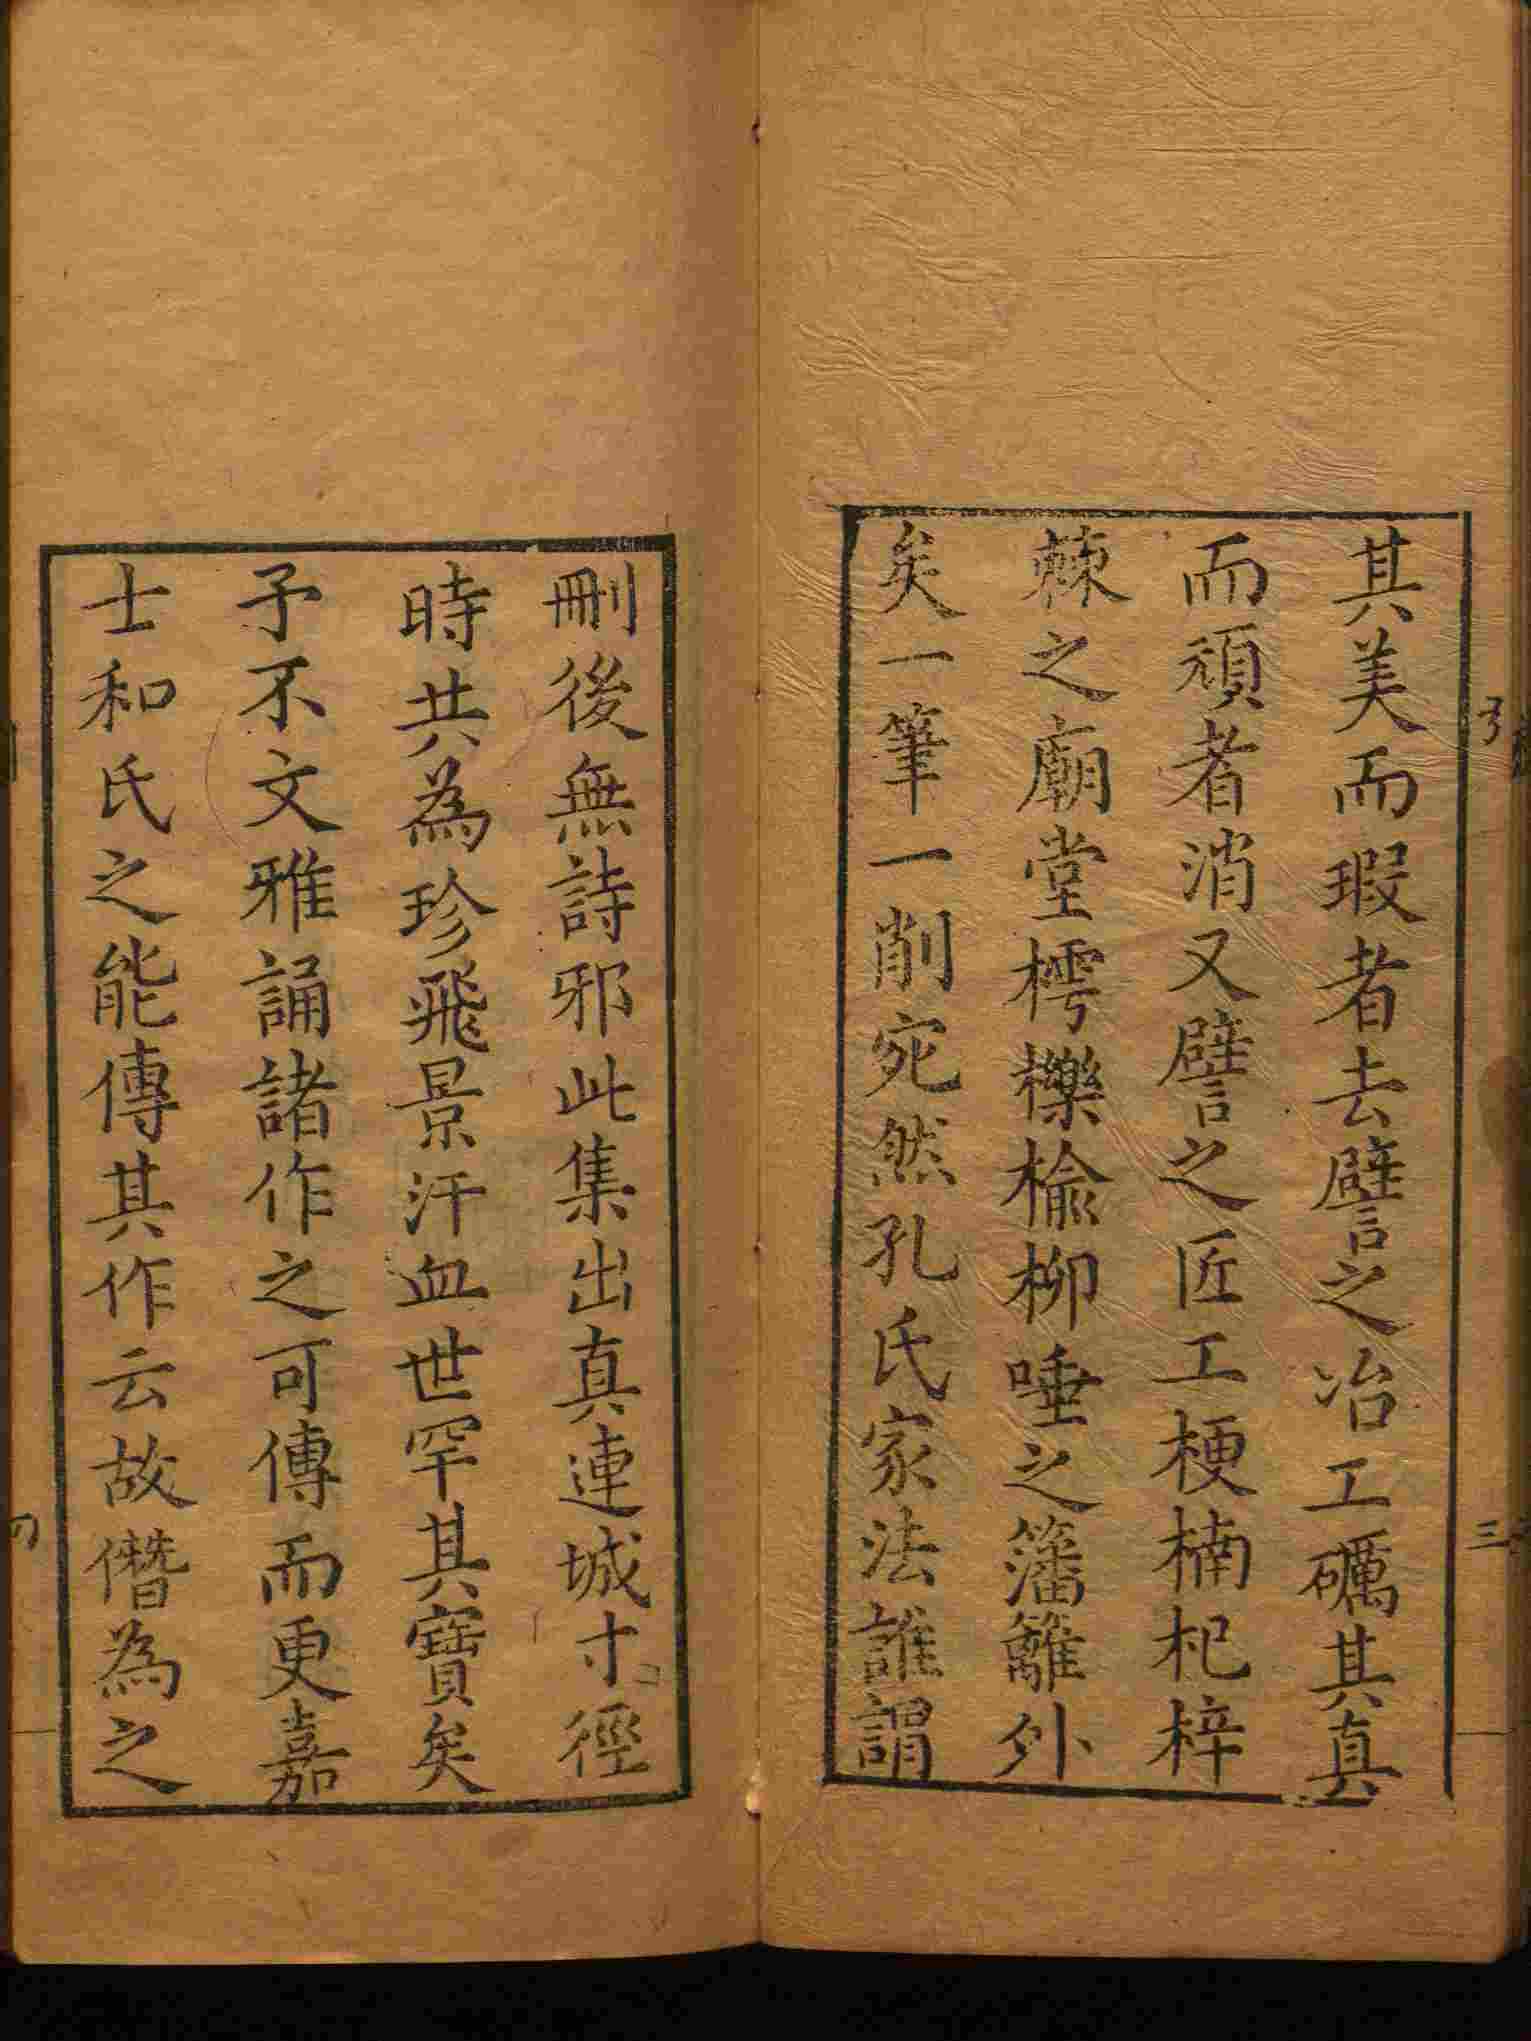 其美而瑕者去譬之冶工礪其真
而頑者消又譬之匠工梗楠杞梓
蕀之廟堂樗櫟榆柳唾之籓籬外
矣一筆一削宛然孔氏家法誰謂
三
刪後無詩邪此集出真連城寸徑
時共為珍飛景汗血世罕其寶矣
予不文雅誦諸作之可傳而更嘉
士和氏之能傳其作云故僭為之